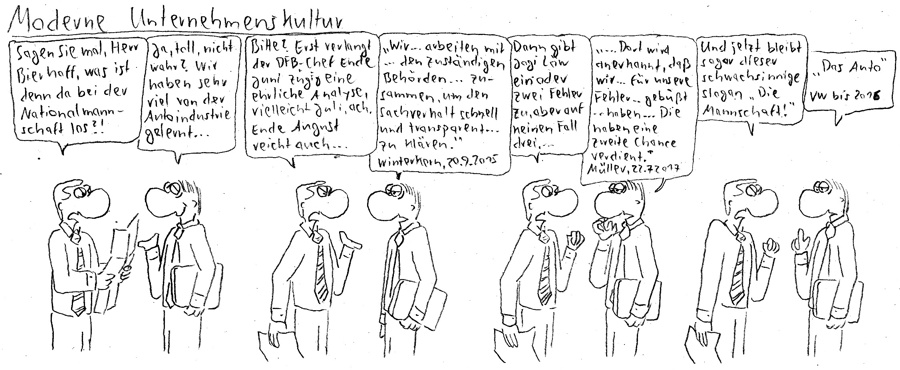 Moderne Unternehmenskultur
Sagen Sie mal, Herr
Bierhoff, was ist
denn da bei der
Nationalmann-
schaft los?!
Ja, toll, nicht
wahr? Wir
haben sehr
viel von der
Autoindustrie
gelernt...
Bitte? Erst verlangt
der DFB-Chef Ende
Juni zügig eine
ehrliche Analyse,
vielleicht Juli, ach,
Ende August
reicht auch...
„Wir... arbeiten mit
... den zuständigen
Behörden... zu-
sammen, um den
Sachverhalt schnell
und transparent...
zu klären."
Winterkorn, 20.9.2015
Dann gibt
Jogi Löw
ein oder
zwei Fehler
zu, aber auf
keinen Fall
drei,...
„... Dort wird
anerkannt, daß
wir... für unsere
Fehler... gebüßt
...haben... Die
haben eine
zweite Chance
verdient."
Müller, 22.7.2017
Und jetzt bleibt
sogar dieser
schwachsinnige
Slogan „Die
Mannschaft!"
„Das Auto"
VW bis 2016